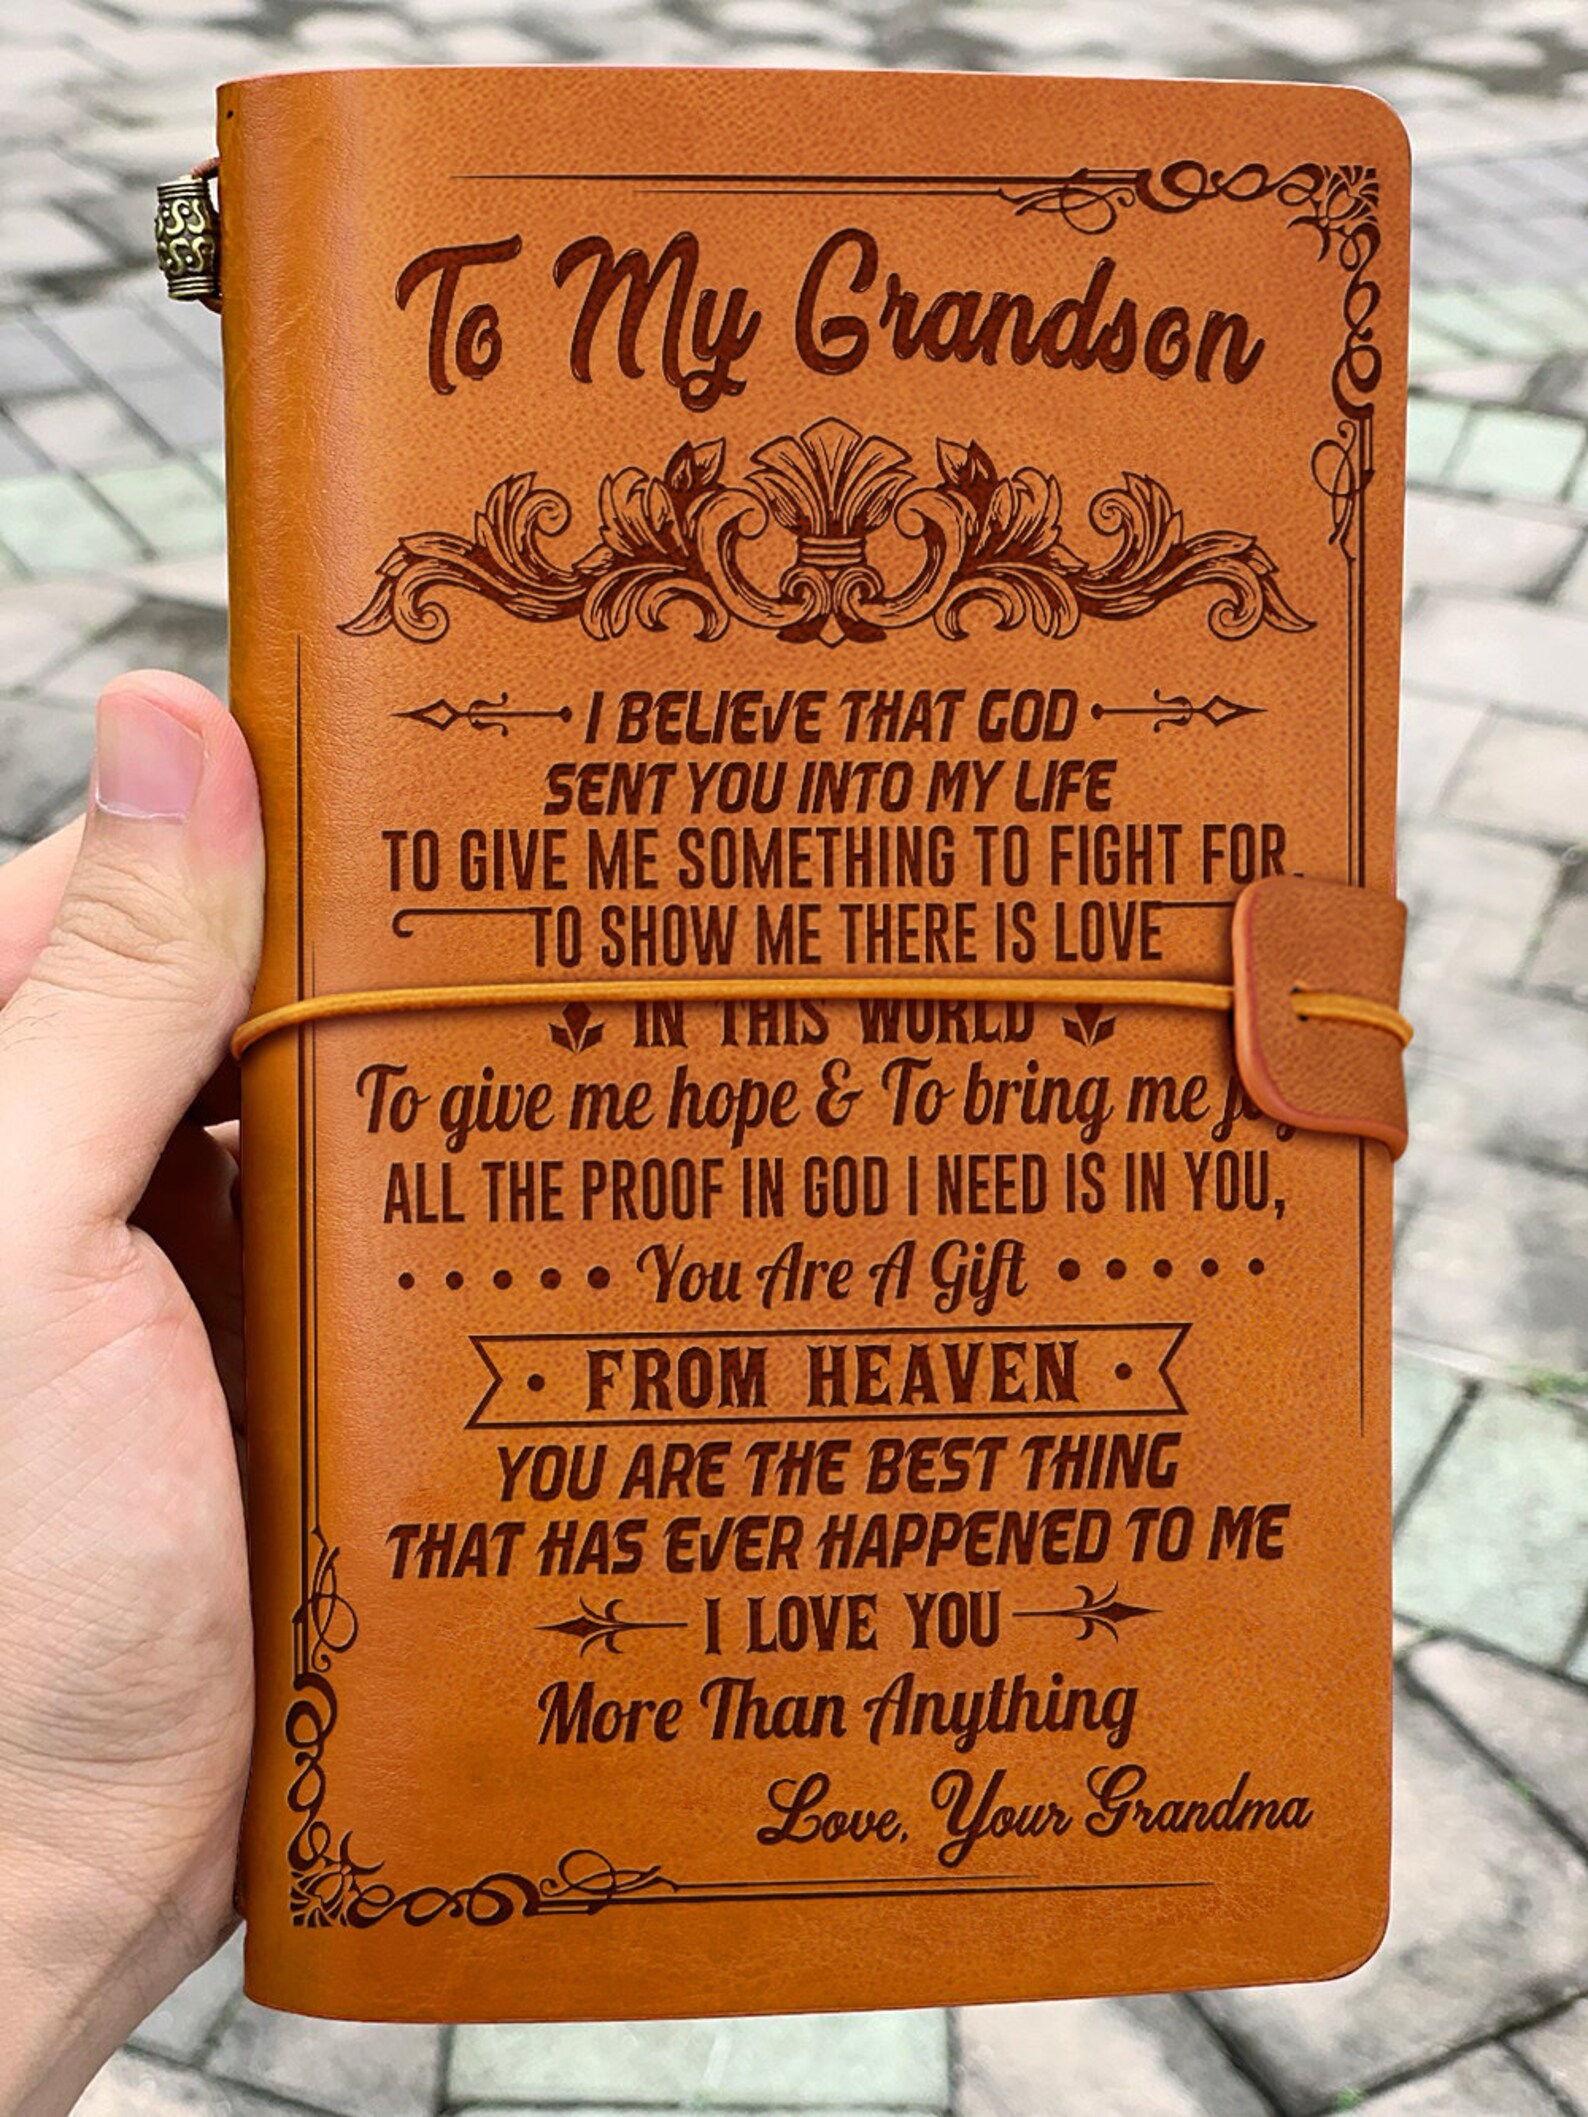 To My Grandson
I BELIEVE THAT GOD
SENT YOU INTO MY LIFE
TO GIVE ME SOMETHING TO FIGHT FOR,
TO SHOW ME THERE IS LOVE
IN THIS WORLD
To give me hope & To bring me
ALL THE PROOF IN GOD I NEED IS IN YOU,
You Are A Gift
FROM HEAVEN
YOU ARE THE BEST THING
THAT HAS EVER HAPPENED TO ME
I LOVE YOU
More Than Anything
Love, Your Grandma